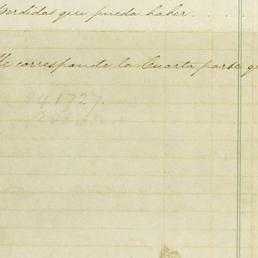 Perdidas que pueda haber. . . . .
le corresponde la Cuarta parte q
41727.